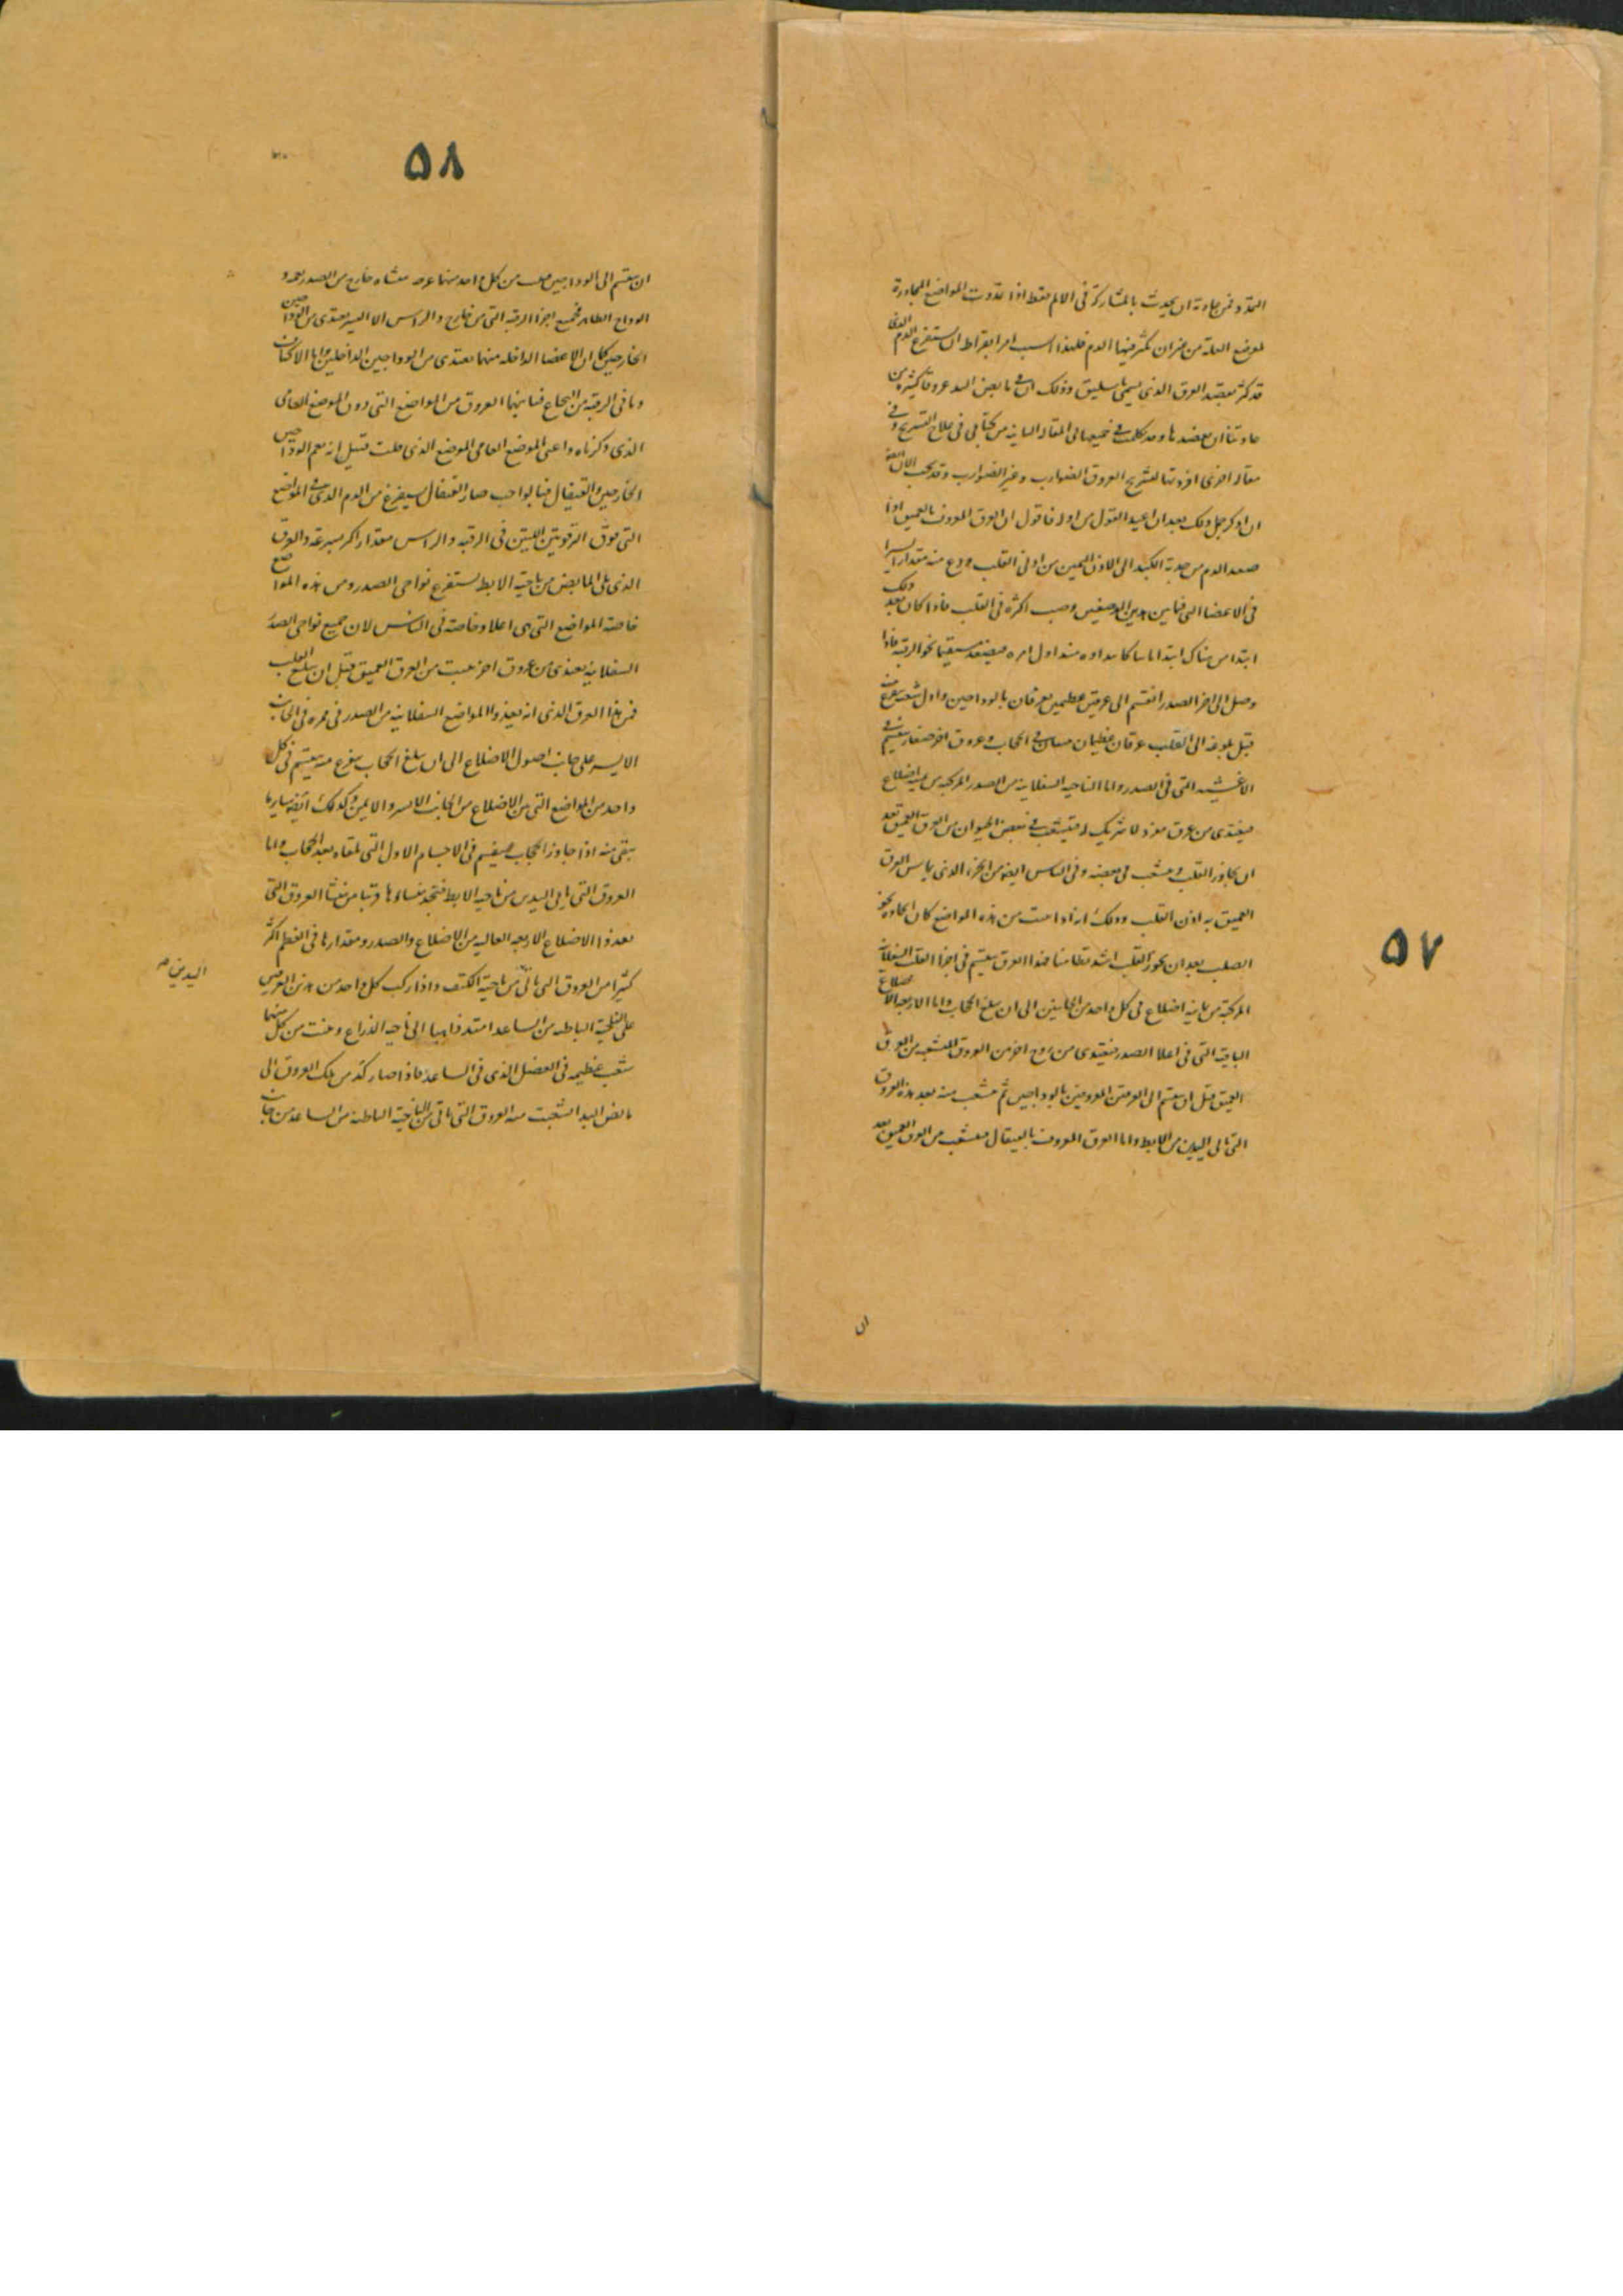 التمدد فمن عادته ان يحدث بالمشاركة في الالم فقط اذا تمددت المواضع المجاورة
لموضع العلة من غير ان يكثر فيها الدم فلهذا السبب امر ابقراط ان يستفرغ الدم الذي
قد كثر بفصد العرق الذي يسمى باسليق وذلك ان في مابض اليد عروقا كثيرة من
عادتنا ان نفصدها وقد تكلمت في جميعها في المقالة الثانية من كتابي في علاج التشريح وفي
مقالة اخرى افردتها لتشريح العروق الضوارب وغير الضوارب وقد يجب الان
ان اذكر جمل ذلك بعد ان اعيد القول من اوله فاقول ان العرق المعروف بالعميق اذا
صعد الدم من حدبة الكبد الى الاذن اليمين من اذني القلب وزع منه مقدارا يسيرا
في الاعضا التي فيما بين هذين الموضعين وصب اكثره في القلب فاذا كان بعد ذلك
ابتدا من هناك ابتدا ثانيا كابتداوه منذ اول امره فيصعد مستقيما نحو الرقبة فاذا
وصل الى اخر الصدر انقسم الى عرقين عظيمين يعرفان بالوداجين واول شعب تتفرع منه
قبل بلوغه الى القلب عرقان عظيمان في الحجاب وعروق اخر صغار تنقسم في
الاغشية التي في الصدر واما الناحية السفلانية من الصدر المركبة من ثمانية اضلاع
فيغتدي من عرق مفرد لا شريك له يتشعب في بعض الحيوان من العرق العميق بعد
ان يجاوز القلب ويتشعب في بعضه وفي الناس ايضا من الجزء الذي يماس العرق
العميق به اذن القلب وذلك انه اذا نبت من هذه المواضع كان انحداره نحو
الصلب بعد ان يجوز القلب اشد تطامنا فهذا العرق ينقسم في اجزا القلب السفلانية
المركبة من ثمانية اضلاع في كل واحد من الجانبين الى ان يبلغ الحجاب واما الاربعة الاضلاع
الباقية التي في اعلا الصدر فيغتدي من زوج اخر من العروق المتشعبة من العرق
العميق قبل ان ينقسم الى العرقين المعروفين بالوداجين ثم يتشعب منه بعد هذه العروق
التي تاتي اليدين من الابط واما العرق المعروف بالقيفال فيتشعب من العرق العميق بعد
ان
٥٧
٥٨
ان ينقسم الى الوداجين من كل واحد منهما عرق منشاه خارج من الصدر بعد
الوداج الظاهر فجميع اجزا الرقبة التي من خارج والراس الا اليسير يغتدي من الوداجين
الخارجين كما ان الاعضا الداخلة منها يغتدي من الوداجين الداخلين واما الاكتاف
وما في الرقبة من النخاع فياتيها العروق من المواضع التي دون الموضع العامي
الذي ذكرناه واعني الموضع العامي الموضع الذي قلت قبيل انه يعم الوداجين
الخارجين والقيفال فبالواجب صار القيفال يستفرغ من الدم الذي في المواضع
التي فوق الترقوتين اللتين في الرقبة والراس مقدار اكثر بسرعة والعرق
الذي يلي المابض من ناحية الابط يستفرغ نواحي الصدر ومن هذه المواضع
خاصة المواضع التي هي اعلا وخاصة في الناس لان جميع نواحي الصدر
السفلانية يغتدي من عروق اخر تنبت من العرق العميق قبل ان يبلغ القلب
فمن هذا العرق الذي انه يغذوا المواضع السفلانية من الصدر في ممره في الجانب
الايسر على جانب اصول الاضلاع الى ان يبلغ الحجاب يتفرع منه ينقسم في كل
واحد من المواضع التي بين الاضلاع من الجانب الايسر والايمن وكذلك ايضا ساير ما
يبقى منه اذا جاوز الحجاب فينقسم في الاجسام الاول التي تلقاه بعد الحجاب واما
العروق التي تاتي اليدين من ناحية الابط فتجد منشاءها قريبا من منشا العروق التي
يغذوا الاضلاع الاربعة العالية من الاضلاع والصدر ومقدارها في العظم اكثر
كثيرا من العروق التي تاتي من ناحية الكتف واذا ركب كل واحد من هذين العرقين
اليدين صح
على الناحية الباطنة من الساعد امتد ذاهبا الى ناحية الذراع ونبتت من كل منهما
شعب عظيمة في العضل الذي في الساعد فاذا صار كذلك من تلك العروق الى
مابض اليد انشعبت منه العروق التي تاتي من الناحية الباطنة من الساعد من جانب